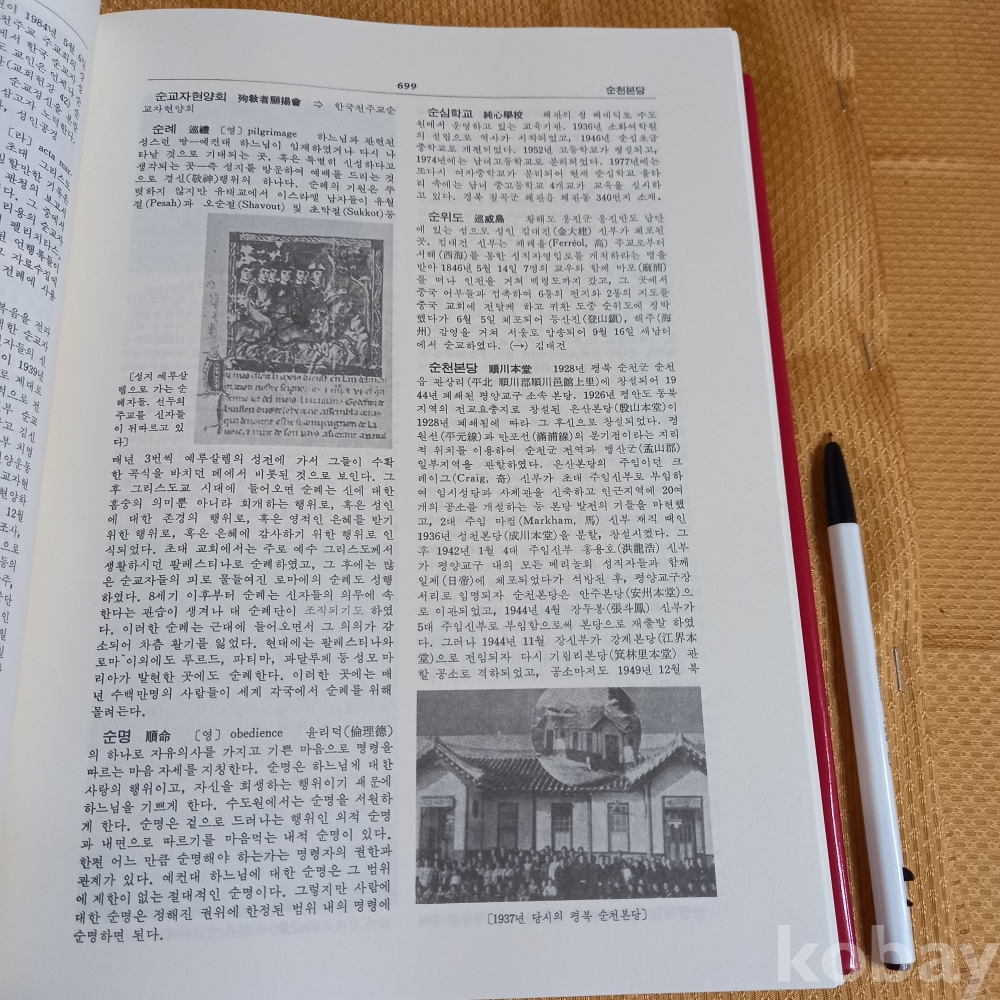 년이 1984년 5월 6일
699
순천본당
순교자현양회 殉敎者顯揚會 ⇨ 한국천주교순
교자현양회
순례 巡禮 [영] pilgrimage 하느님과 관련된
성스런 땅—예컨대 하느님이 임재하였거나 다시 나
타날 것으로 기대되는 곳, 혹은 특별히 신성하다고
생각되는 곳—즉 성지를 방문하여 예배를 드리는 것
으로 경신(敬神)행위의 하나다. 순례의 기원은 뚜
렷하지 않지만 유태교에서 이스라엘 남자들이 유월
절(Pesah)과 오순절(Shavout) 및 초막절(Sukkot)등
[성지 예루살
렘으로 가는 순
례자들. 선두의
주교를 신자들
이 뒤따르고 있
다]
매년 3번씩 예루살렘의 성전에 가서 그들이 수확
한 곡식을 바치던 데에서 비롯된 것으로 보인다. 그
후 그리스도교 시대에 들어오면 순례는 신에 대한
흠숭의 의미뿐 아니라 회개하는 행위로, 혹은 성인
에 대한 존경의 행위로, 혹은 영적인 은혜를 받기
위한 행위로, 혹은 은혜에 감사하기 위한 행위로 인
식되었다. 초대 교회에서는 주로 예수 그리스도께서
생활하시던 팔레스티나로 순례하였고, 그 후에는 많
은 순교자들의 피로 물들여진 로마에의 순례도 성행
하였다. 8세기 이후부터 순례는 신자들의 의무에 속
한다는 관습이 생겨나 대 순례단이 조직되기도 하였
다. 이러한 순례는 근대에 들어오면서 그 의의가 감
소되어 차츰 활기를 잃었다. 현대에는 팔레스티나와
로마 이외에도 루르드, 파티마, 과달루페 등 성모 마
리아가 발현한 곳에도 순례한다. 이러한 곳에는 매
년 수백만명의 사람들이 세계 각국에서 순례를 위해
몰려든다.
순명 順命 [영] obedience 윤리덕(倫理德)
의 하나로 자유의사를 가지고 기쁜 마음으로 명령을
따르는 마음 자세를 지칭한다. 순명은 하느님에 대한
사랑의 행위이고, 자신을 희생하는 행위이기 때문에
하느님을 기쁘게 한다. 수도원에서는 순명을 서원하
게 한다. 순명은 겉으로 드러나는 행위인 외적 순명
과 내면으로 따르기를 마음먹는 내적 순명이 있다.
한편 어느 만큼 순명해야 하는가는 명령자의 권한과
관계가 있다. 예컨대 하느님에 대한 순명은 그 범위
에 제한이 없는 절대적인 순명이다. 그렇지만 사람에
대한 순명은 정해진 권위에 한정된 범위 내의 명령에
순명하면 된다.
순심학교 純心學校 왜관의 성 베네딕토 수도
원에서 운영하고 있는 교육기관. 1936년 소화여학원
의 설립으로 역사가 시작되었고, 1946년 순심초급
중학교로 개편되었다. 1952년 고등학교가 병설되고,
1974년에는 남녀고등학교로 분리되었다. 1977년에는
또다시 여자중학교가 분리되어 현재 순심학교 울타
리 속에는 남녀 중고등학교 4개교가 교육을 실시하
고 있다. 경북 칠곡군 왜관읍 왜관동 340번지 소재.
순위도 巡威島 황해도 옹진군 옹진반도 남단
에 있는 섬으로 성인 김대건(金大建) 신부가 체포된
곳. 김대건 신부는 페레올(Ferréol, 高) 주교로부터
서해(西海)를 통한 성직자영입로를 개척하라는 명을
받아 1846년 5월 14일 7명의 교우와 함께 마포(麻浦)
를 떠나 인천을 거쳐 백령도까지 갔고, 그 곳에서
중국 어부들과 접촉하여 6통의 편지와 2통의 지도를
중국 교회에 전달케 하고 귀환 도중 순위도에 정박
했다가 6월 5일 체포되어 등산진(登山鎭), 해주(海
州) 감영을 거쳐 서울로 압송되어 9월 16일 새남터
에서 순교하였다. (→) 김대건
순천본당 順川本堂 1928년 평북 순천군 순천
읍 관상리(平北 順川郡順川邑館上里)에 창설되어 19
44년 폐쇄된 평양교구 소속 본당. 1926년 평안도 동북
지역의 전교요충지로 창설된 은산본당(殷山本堂)이
1928년 폐쇄됨에 따라 그 후신으로 창설되었다. 평
원선(平元線)과 만포선(滿浦線)의 분기점이라는 지리
적 위치를 이용하여 순천군 전역과 맹산군(孟山郡)
일부지역을 관할하였다. 은산본당의 주임이던 크
레이그(Craig, 奇) 신부가 초대 주임신부로 부임하
여 임시성당과 사제관을 신축하고 인근지역에 20여
개의 공소를 개설하는 등 본당 발전의 기틀을 마련했
고, 2대 주임 마컴(Markham, 馬) 신부 재직 때인
1936년 성천본당(成川本堂)을 분할, 창설시켰다. 그
후 1942년 1월 4대 주임신부 홍용호(洪龍浩) 신부
가 평양교구 내의 모든 메리놀회 성직자들과 함께
일제(日帝)에 체포되었다가 석방된 후, 평양교구장
서리로 임명되자 순천본당은 안주본당(安州本堂)으
로 이관되었고, 1944년 4월 장두봉(張斗鳳) 신부가
5대 주임신부로 부임함으로써 본당으로 재출발 하였
다. 그러나 1944년 11월 장신부가 강계본당(江界本
堂)으로 전임되자 다시 기림리본당(箕林里本堂) 관
할 공소로 격하되었고, 공소마저도 1949년 12월 북
[1937년 당시의 평북 순천본당]
kobay